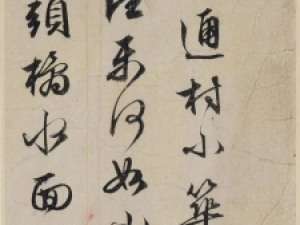 通村小築
来何如
頭橋水面